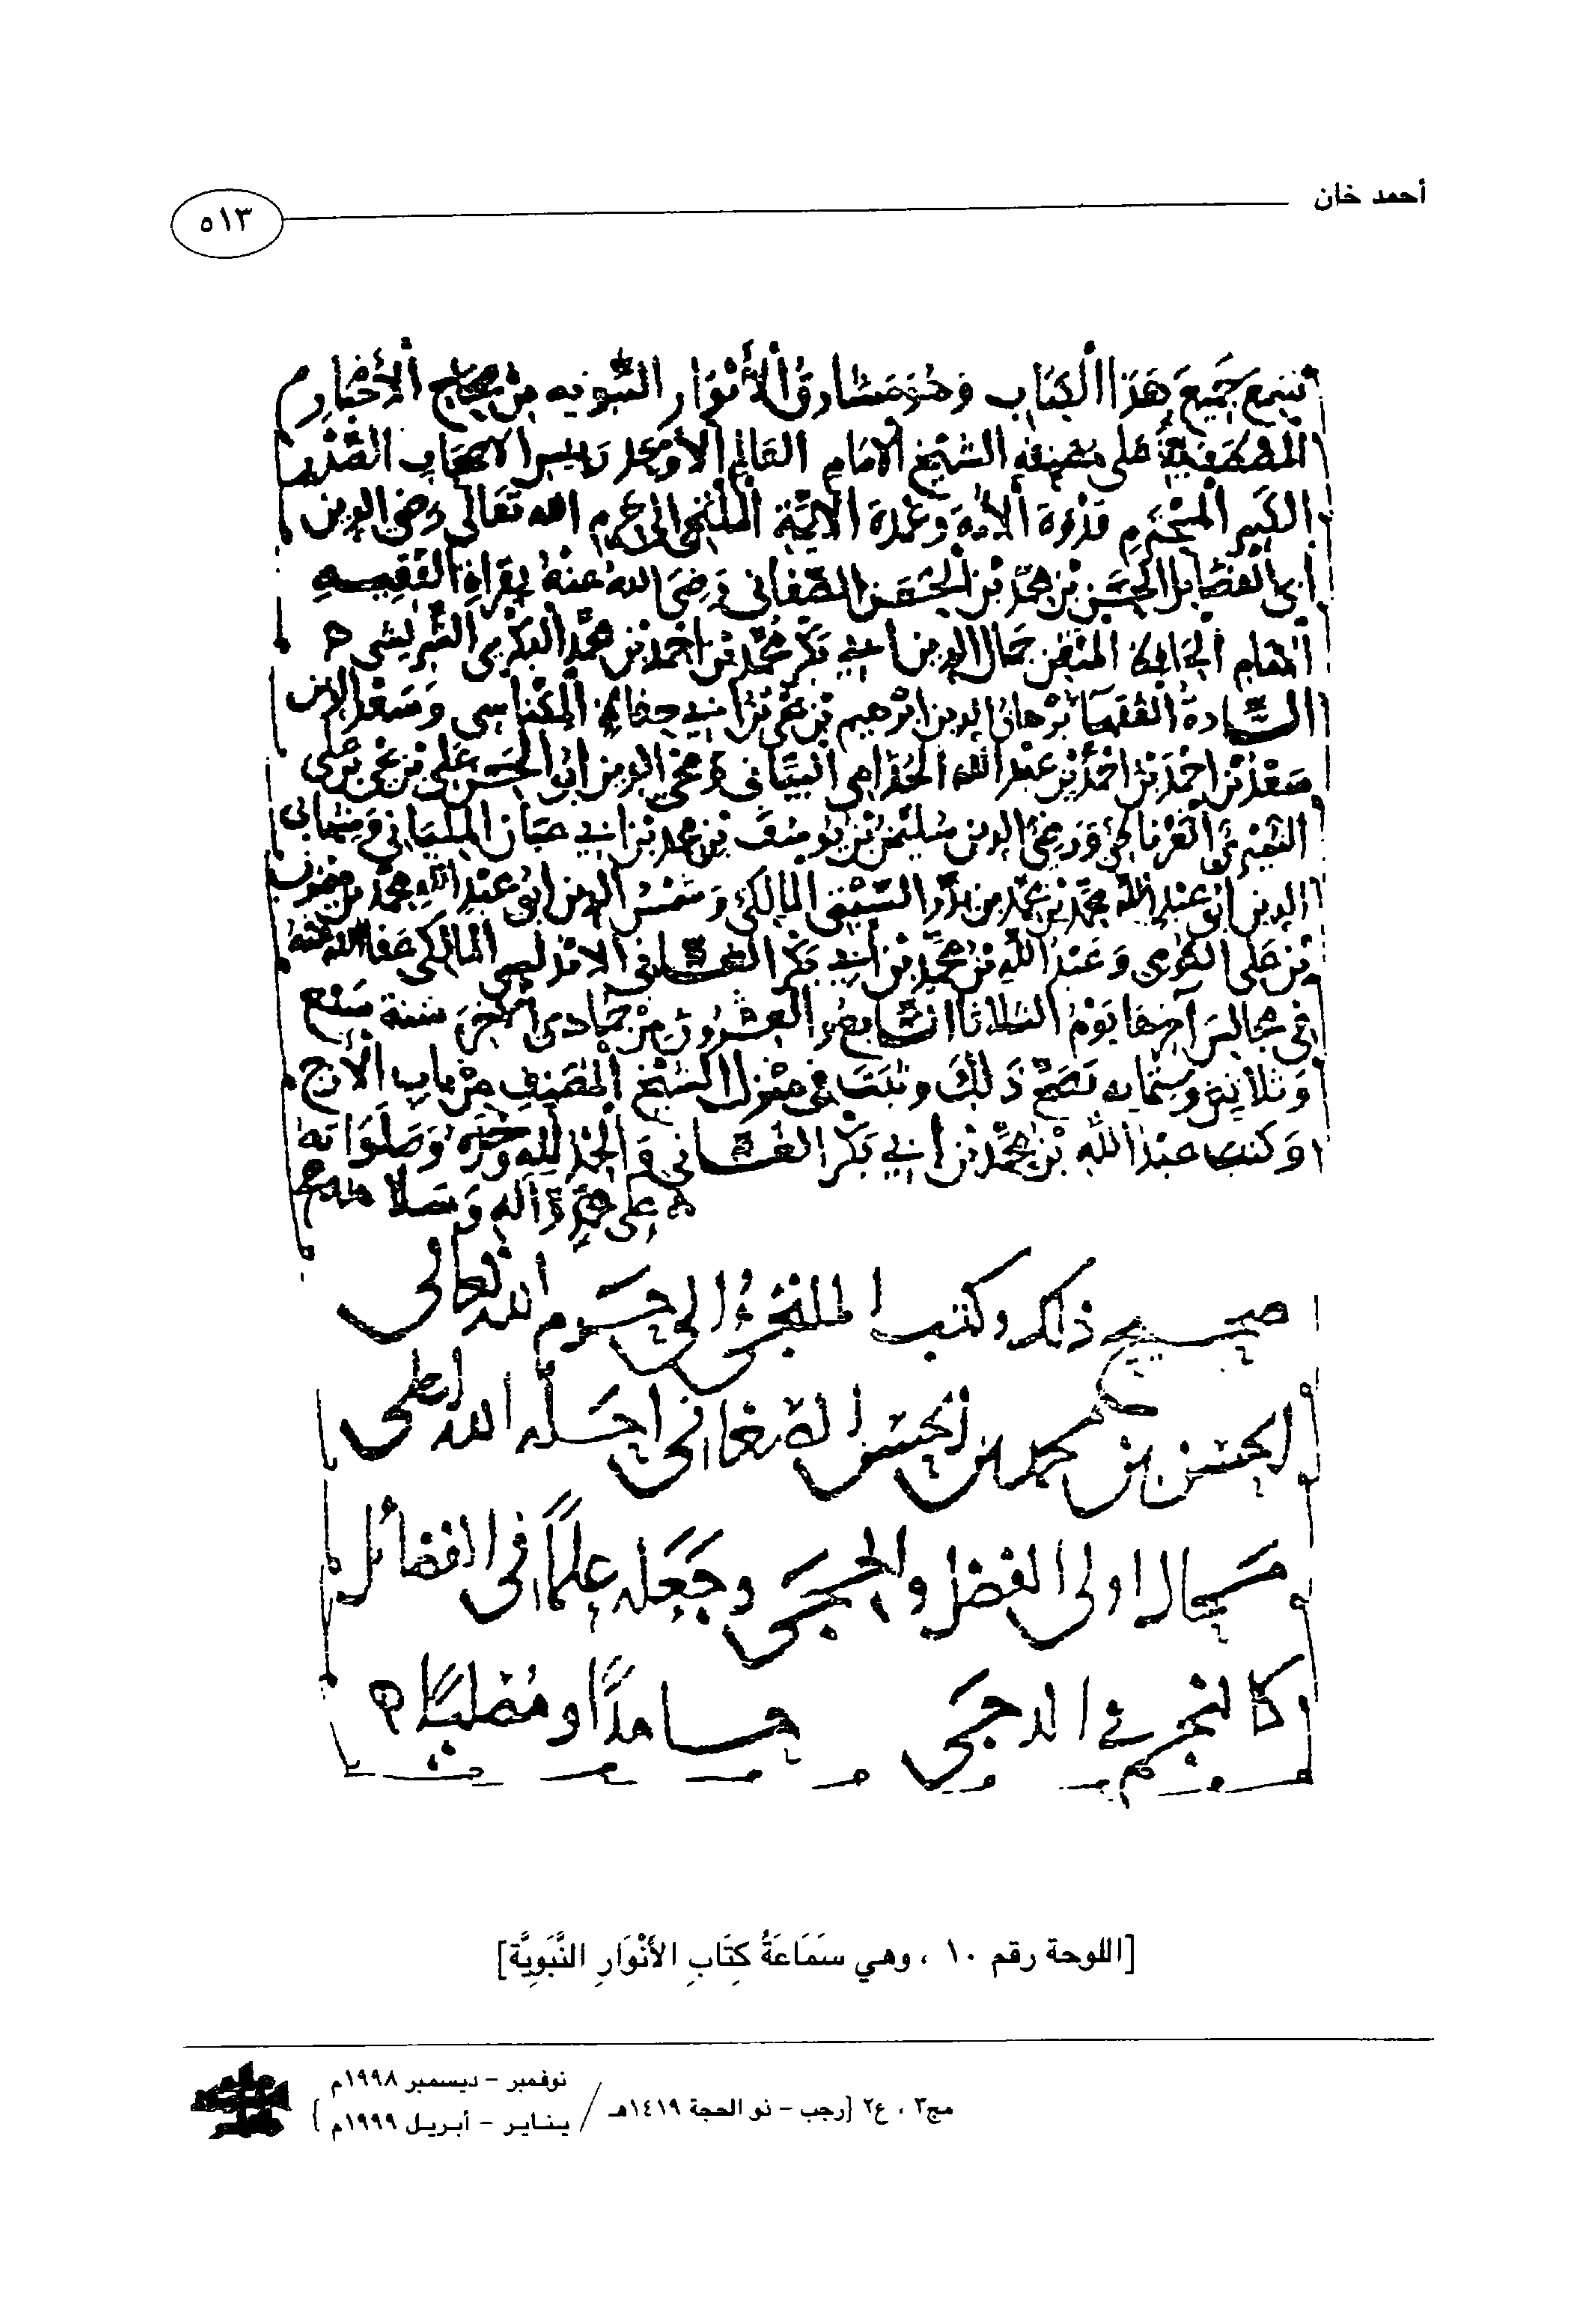 أحمد خان
٥١٣
سمع جميع هذا الكتاب وهو مشارق الأنوار النبويه من صحاح الأخبار
المصطفية على مصنفه الشيخ الامام العالم الأوحد رييس الاصحاب الصدر
الكبير المحترم قدوة الأمة وعمدة الايمة الملتجئ الى حرم الله تعالى رضي الدين
ابى الفضايل الحسن بن محمد بن الحسن الصغاني رضي الله عنه بقراة الفقيه
المتقن جمال الدين ابي بكر محمد بن احمد بن محمد البكري الشريشي
السادة الفقها برهان الدين ابرهيم بن يحيى بن ابي حفاظ المكناسي وسعد الدين
سعد بن احمد بن احمد بن عبد الله الجذامي البياني ومحيي الدين ابو الحسن علي بن
الغرناطي ورضي الدين سليمن بن يوسف بن محمد بن ابي
الدين ابو عبد الله محمد بن محمد بن المالكي وشمس الدين ابو عبد الله محمد بن
بن علي وعبد الله بن محمد بن أبي بكر الغساني الاندلسي المالكي عفا الله عنه
في مجالس آخرها يوم الثلاثا السابع والعشرون من جمادى الآخرة سنة سبع
وثلاثين وستمايه نصح ذلك وثبت في منزل الشيخ المصنف من باب الأزج
وكتب عبد الله بن محمد بن ابي بكر الغساني والحمد لله وحده وصلواته
على محمد وآله وسلامه
صحيح ذلك وكتب الملتجئ الى حرم الله تعالى
الحسن بن محمد بن الحسن الصغاني احله الله تعلى
محال اولى الفضل والحجى وجعله علمًا في الفضائل
كالنجم في الدجى حامدًا ومصليًا
[اللوحة رقم ١٠ ، وهي سَمَاعَةُ كِتَابِ الأَنْوَارِ النَّبَوِيَّة]
مج٣ ، ع٢ [رجب – ذو الحجة ١٤١٩هـ / نوفمبر – ديسمبر ١٩٩٨م
يناير – أبريل ١٩٩٩م ]